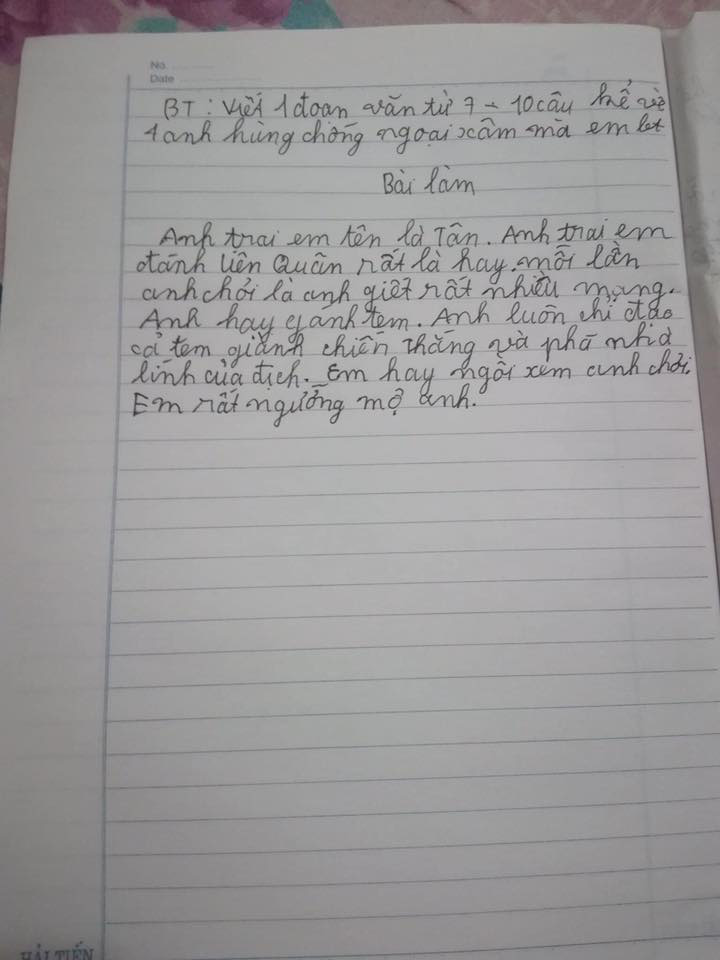 No.
Date
BT: Viết 1 đoan văn từ 7 - 10 câu kể về
1 anh hùng chống ngoại xâm mà em bít
Bài làm
Anh trai em tên là Tân. Anh trai em
đánh liên Quân rất là hay. mỗi lần
anh chơi là anh giết rất nhiều mạng.
Anh hay gánh tem. Anh luôn chỉ đạo
cả tem giành chiến thắng và phá nhà
lính của địch. Em hay ngồi xem anh chơi.
Em rất ngưỡng mộ anh.
HẢI TIẾN